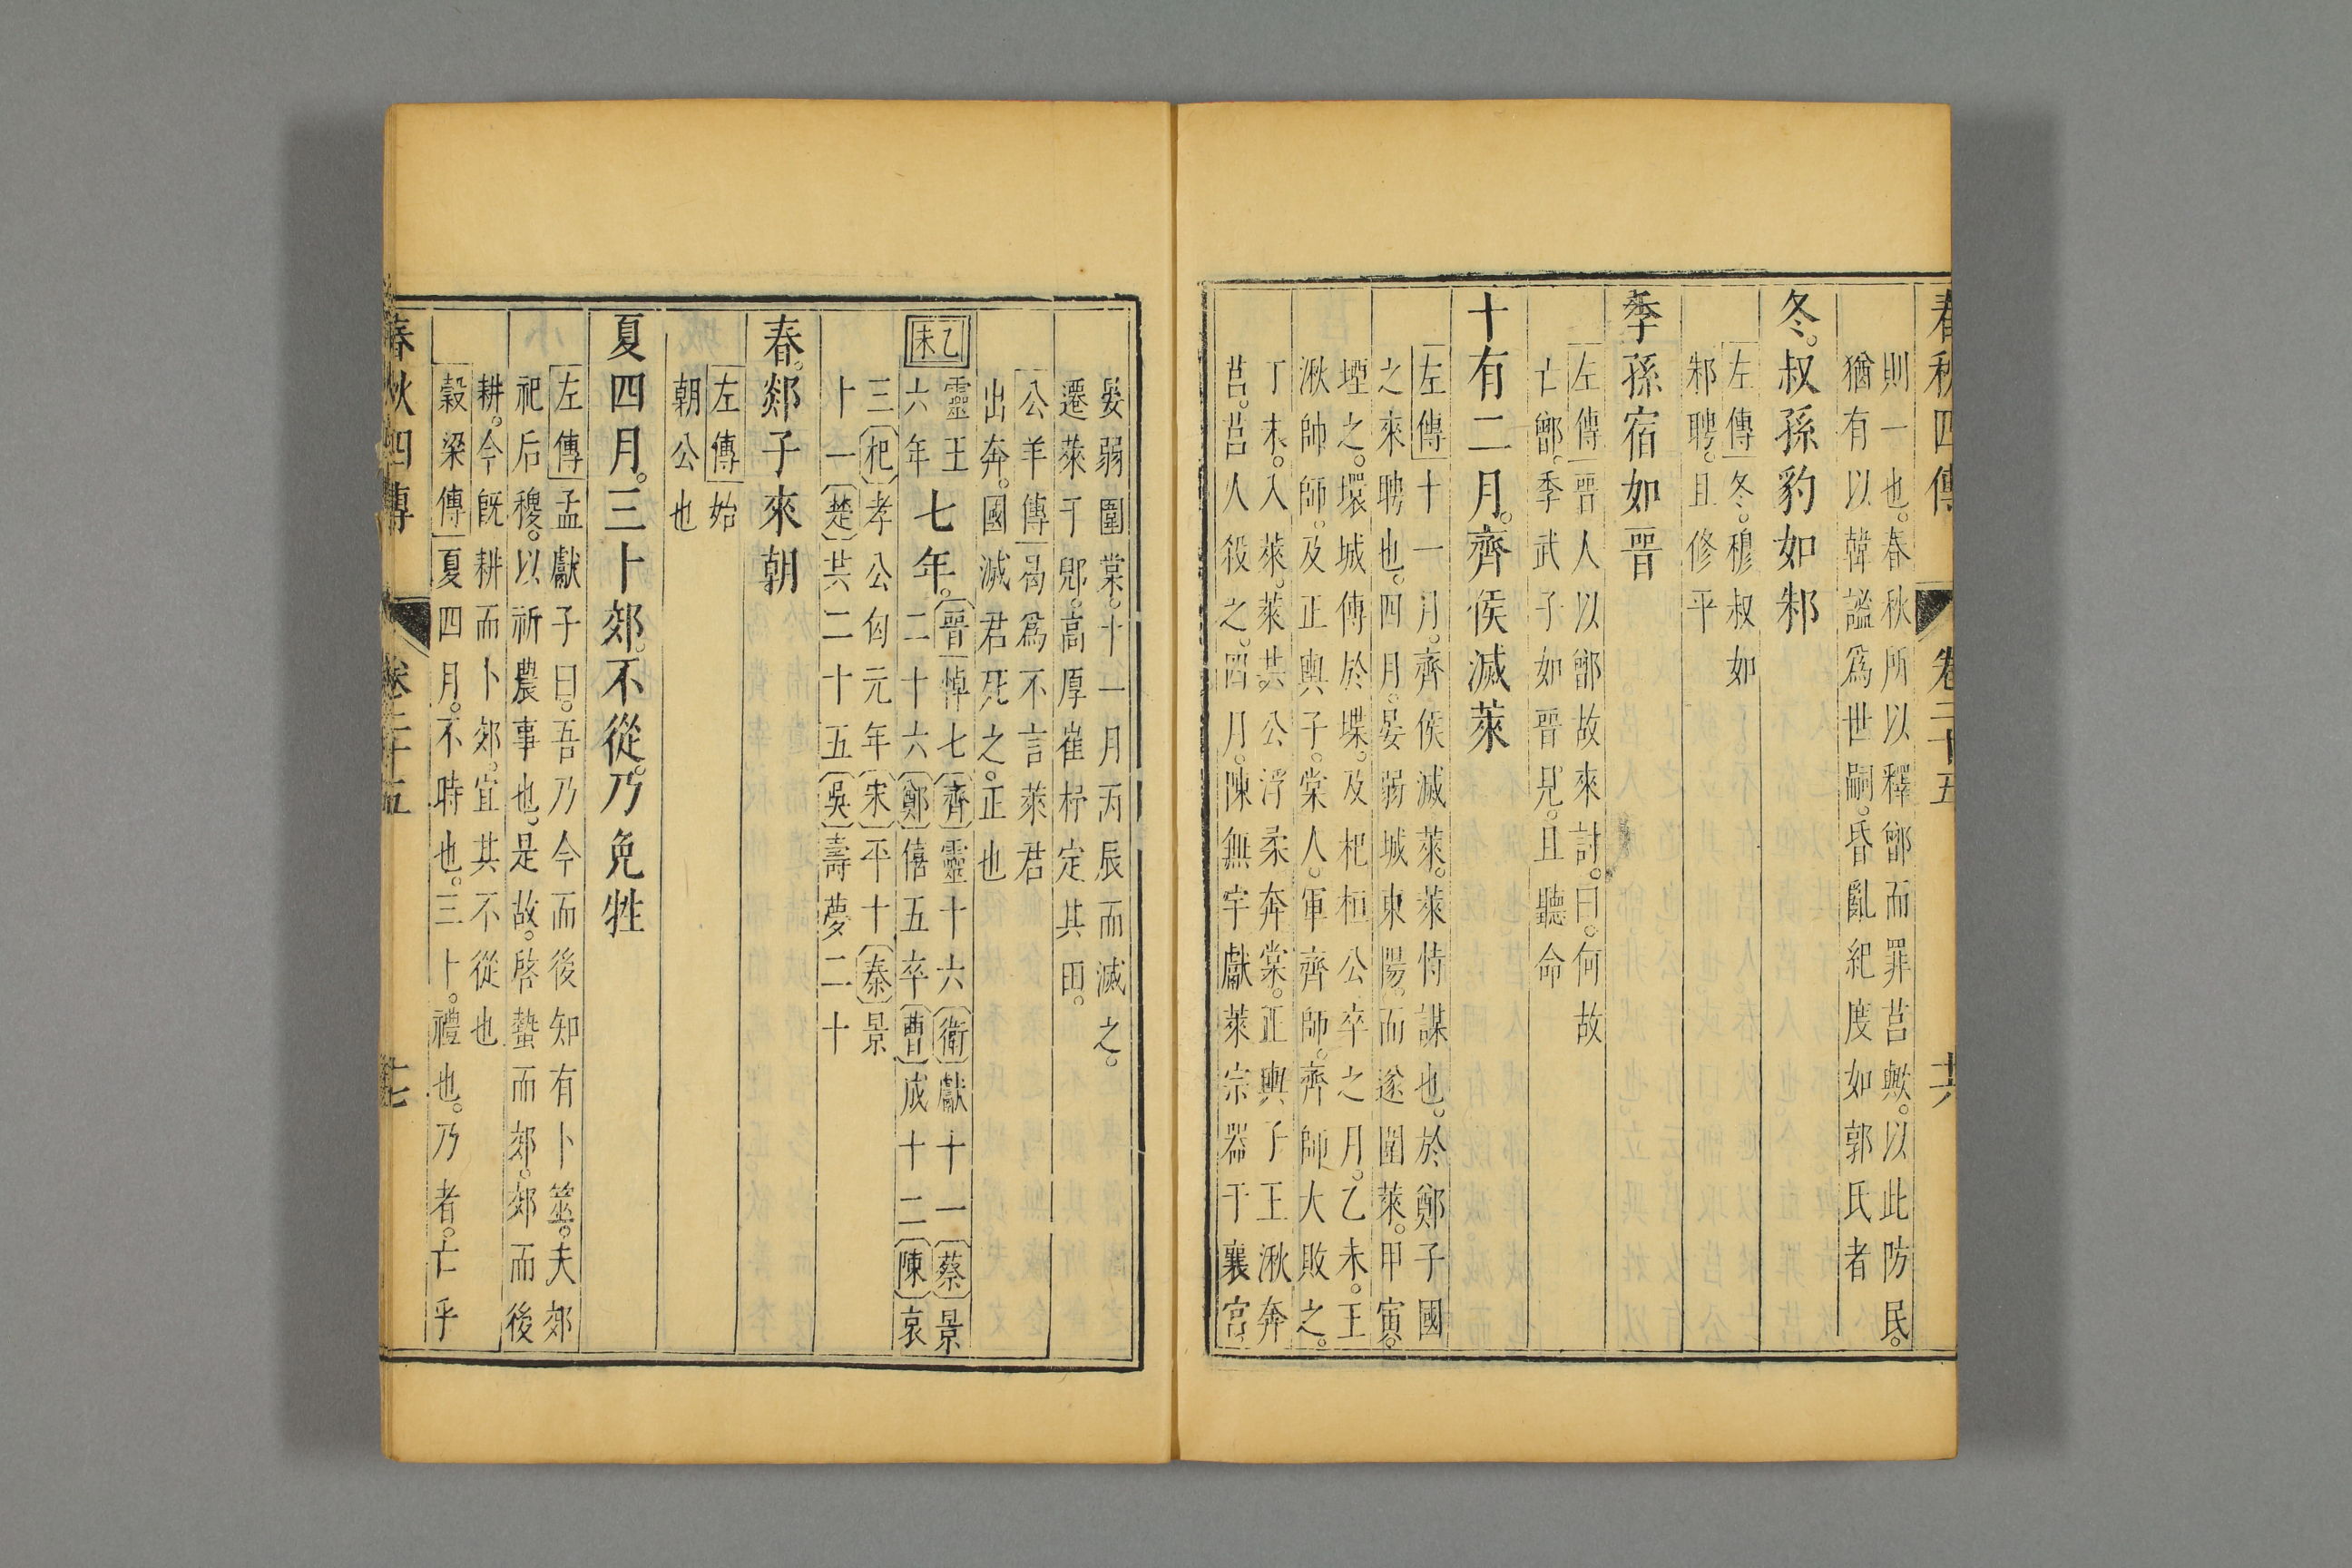 春秋四傳 卷二十五 十六
則一也。春秋所以釋鄫而罪莒歟。以此防民。
猶有以韓謐爲世嗣。昏亂紀度如郭氏者
冬。叔孫豹如邾
左傳冬。穆叔如
邾聘。且修平
季孫宿如晉
左傳晉人以鄫故來討。曰。何故
亡鄫。季武子如晉見。且聽命
十有二月。齊侯滅萊
左傳十一月。齊侯滅萊。萊恃謀也。於鄭子國
之來聘也。四月。晏弱城東陽。而遂圍萊。甲寅。
堙之。環城傅於堞。及杞桓公卒之月。乙未。王
湫帥師。及正輿子。棠人。軍齊師。齊師大敗之。
丁未。入萊。萊共。公浮柔奔棠。正輿子王湫奔
莒。莒人殺之。四月。陳無宇獻萊宗器于襄宮。
晏弱圍棠。十一月丙辰而滅之。
遷萊于郳。高厚崔杼定其田。
公羊傳曷爲不言萊君
出奔。國滅君死之。正也
乙未 靈王
六年 七年。晉悼七齊靈十六衛獻十一蔡景
二十六鄭僖五卒曹成十二陳哀
三杞孝公匄元年宋平十秦景
十一楚共二十五吳壽夢二十
春。郯子來朝
左傳始
朝公也
夏四月。三卜郊。不從。乃免牲
左傳孟獻子曰。吾乃今而後知有卜筮。夫郊
祀后稷。以祈農事也。是故。啓蟄而郊。郊而後
耕。今旣耕而卜郊。宜其不從也
穀梁傳夏四月。不時也。三卜。禮也。乃者。亡乎
春秋四傳 卷二十五 十七